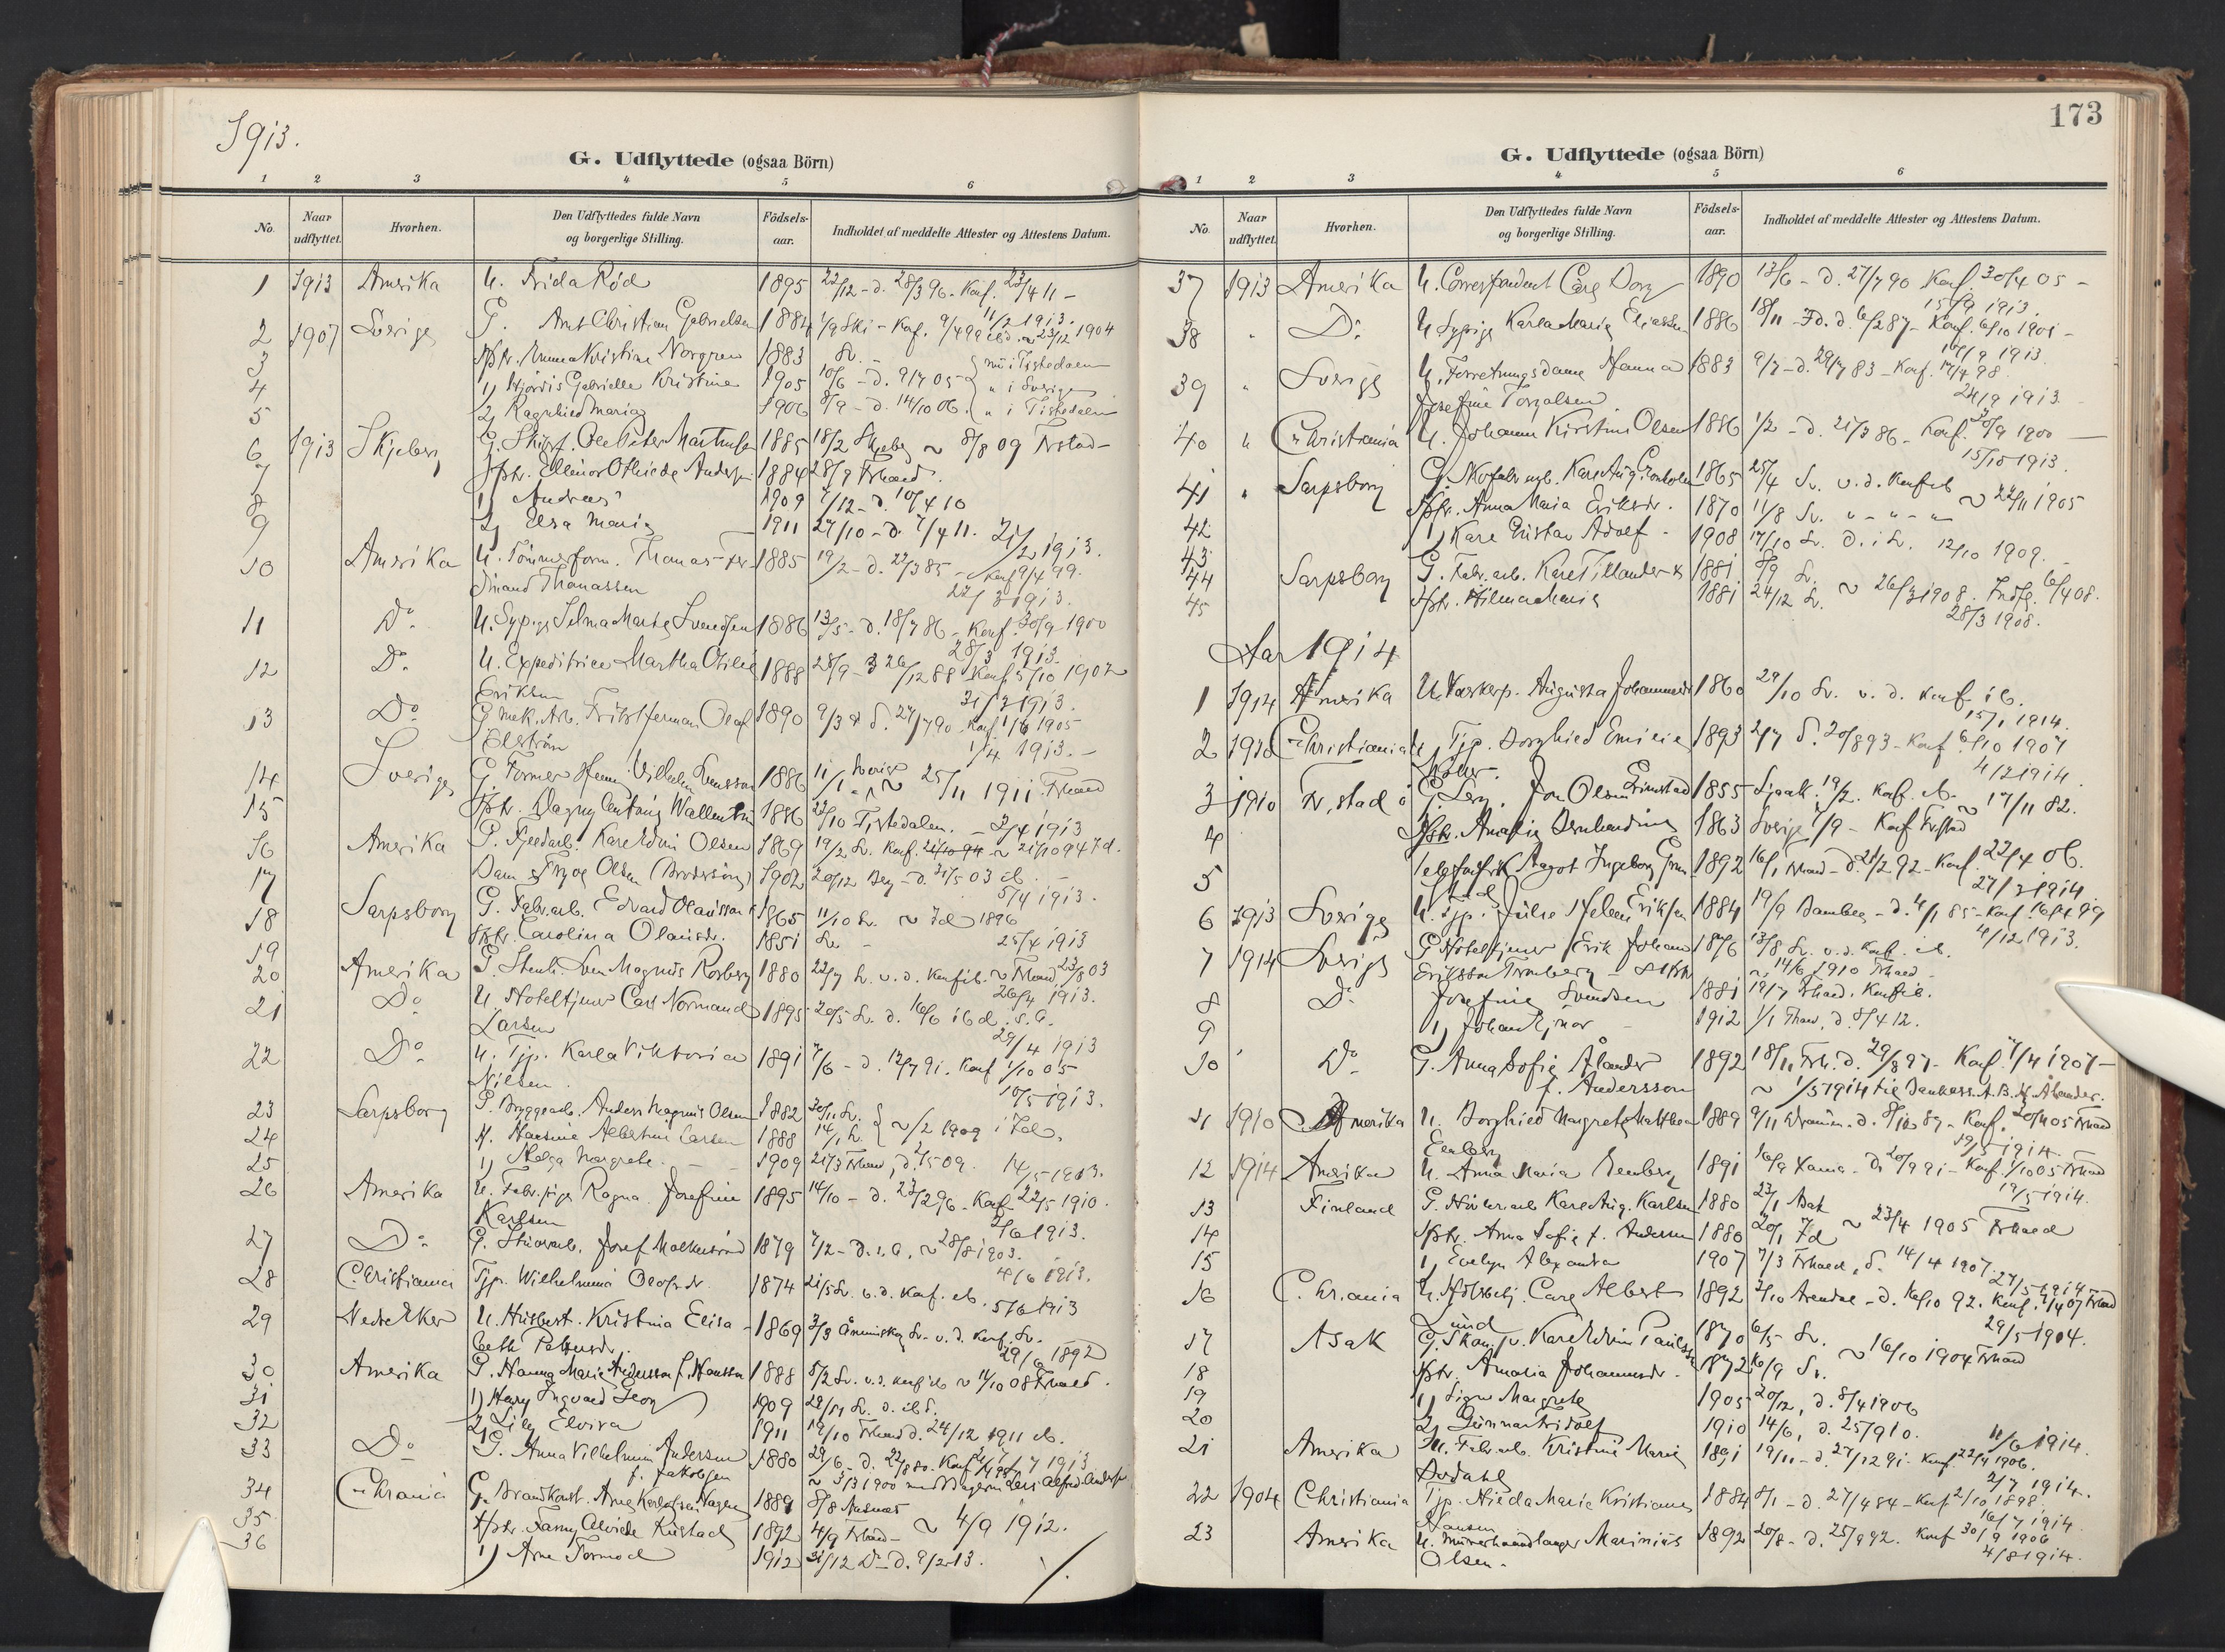 1913.
G. Udflyttede (ogsaa Börn)
1 2 3 4 5 6
No. Naar udflyttet. Hvorhen. Den Udflyttedes fulde Navn og borgerlige Stilling. Födsels-aar. Indholdet af meddelte Attester og Attestens Datum.
1 1913 Amerika U. Frida Röd 1895 22/12 - d. 28/3 96 - Konf. 23/4 11 -
11/2 1913.
2 1907 Sverige G. Arnt Christian Gabrielsen 1884 1/9 Ski - Konf. 9/4 99 ibd. ~ 23/12 1904
3 Hstr. Emma Kristine Norgren 1883 Sv. - nu i Tistedalen
4 1) Hjördis Gabrielle Kristine 1905 10/6 - d. 9/7 05 " i Sverige
5 2) Ragnhild Maria 1906 8/9 - d. 14/10 06. " i Tistedalen
6 1913 Skjeberg G. Ole Peter 1885 18/2 Skjeberg ~ 8/8 09 Frstad -
7 Hstr. Ellinor Othilde 1884 28/9 Frhald.
8 1) Andreas 1909 7/12 - d. 10/4 10
9 2) Elsa Maria 1911 27/10 - d. 7/4 11. 21/2 1913.
10 Amerika U. Tömmerform. Thomas Fer- 1885 19/2 - d. 22/3 85 - Konf 9/4 99.
dinand Thomassen 22/3 1913.
11 Do U. Sypige Selma Marta Svendsen 1886 13/5 - d. 18/7 86 - Konf. 30/9 1900
28/3 1913.
12 Do U. Expeditrice Martha Otilie 1888 28/9 - d. 26/12 88 Konf. 5/10 1902
Eriksen 31/3 1913.
13 Do G. mek. Arb. Fritz Herman Olaf 1890 9/3 d. 27/7 90 Konf. 1/10 1905
Elström 1/4 1913. -
14 Sverige G. Former Vilhelm 1886 Sverige ~ 25/11 1911 Frhald
15 Hstr. Dagny Antonie Wallentin 1886 22/10 Tistedalen. - 3/4 1913
16 Amerika Karl Edvin Olsen 1869 19/2 Sv. Konf.
17 Olsen (Brodersön) 1902 20/12 Berg - d. 31/5 03 ib. -
5/4 1913.
18 Sarpsborg G. Fabr.arb. Edvard Olausson 1865 11/10 Sv. ~ Idd 1896
19 Hstr. Carolina Olausdr. 1851 Sv. - 25/4 1913
20 Amerika G. Stenh. Sven Magnus Rosberg 1880 22/7 Sv. v. d. Konf ib. ~ Frhald 23/8 03
26/4 1913.
21 Do U. Hoteltjener Carl Normand 1895 20/5 Sv. d. 16/6 ibd. s. A.
Larsen 29/4 1913
22 Do U. Tjp. Karla Viktoria 1891 7/6 - d. 12/7 91. Konf 1/10 05
Nilsen. 10/5 1913.
23 Sarpsborg G. Bryggearb. Anders Magnus Olsen 1882 30/11 Sv.
24 H. Hansine Albertine Larsen 1888 14/1 ~ /2 1909 i Idd.
25 1) Helga Margrete. - - 1909 21/3 Frhald, d. 2/5 09. 14/5 1913.
26 Amerika U. Fabr.pige Ragna Josefine 1895 14/10 - d. 23/2 96 - Konf 22/5 1910.
Karlsen 2/6 1913.
27 Do G. Josef 1879 7/2 - d. s. A. ~ 28/8 1903.
4/6 1913.
28 Christiania Tjp. Wilhelmina Olofsdr. 1874 21/5 Sv. v. d. Konf. ib. 5/6 1913
29 Nedre Eker U. Husbest. Kristina Elisa- 1869 3/3 Sv. v. d. Konf. Sv.
beth 29/ 1892
30 Amerika G. Hanna Marie Andersson f. Hansson 1888 5/2 Sv. v. d. Konf ib ~ 14/10 08 Frhald.
31 1) Harry Ingvard Georg 1909 28/ Sv. d. ibd.
32 2) Lilly Elvira 1911 19/10 Frhald d. 24/12 1911 ib.
33 Do G. Anna Vilhelmina Andersen 1880 29/6 - d. 22/8 80. Konf
f. Jakobsen ~ 3/3 1900 med Lars Alfred Anders
34 C.hrania G. Brandkonst. Arne Hagen 1889 8/8
35 Hstr. Fanny Alvilde Rustad 1892 4/9 Frhald - ~ 4/9 1912.
36 1) Arne Tormod 1912 31/12 Do - d. 9/2 13.
173
G. Udflyttede (ogsaa Börn)
1 2 3 4 5 6
No. Naar udflyttet. Hvorhen. Den Udflyttedes fulde Navn og borgerlige Stilling. Födsels-aar. Indholdet af meddelte Attester og Attestens Datum.
37 1913 Amerika U. Correspondent Carl Dorg 1890 13/6 - d. 27/7 90 Konf. 30/4 05 -
15/9 1913.
38 " Do U. Sypige Karla Marie Eliassen 1886 18/11 - Fd. d. 6/2 87 - Konf. 6/10 1901 -
17/9 1913.
39 " Sverige U. Forretningsdame Hanna 1883 9/7 - d. 29/7 83 - Konf. 17/4 98.
Josefine Torgalsen 24/9 1913.
40 " Christiania U. Johanne Kirstine Olsen 1886 1/2 - d. 21/3 86 - Konf. 30/9 1900 -
15/10 1913.
41 " Sarpsborg G. Skofabr arb. Karl Aug. 1865 25/4 Sv. v. d. Konf ib
42 Hstr. Anna Maria Eriksdr. 1870 11/8 Sv. " - " - " ~ 22/11 1905
43 1) Karl Gustav Adolf - 1908 17/10 Sv. d. i Sv. 12/10 1909.
44 Sarpsborg G. Fabr. arb. Karl Tillander 1881 8/9 Sv.
45 Hstr. Hilma Maria 1881 24/12 Sv. ~ 26/3 1908. Indfl. 6/4 08.
28/3 1908.
Aar 1914
1 1914 Amerika U. Augusta Johannesdr 1860 29/10 Sv. v. d. Konf ib.
15/1 1914.
2 1910 Christiania U. Tjp. Borghild Emilie 1893 2/7 d. 20/8 93 - Konf 6/10 1907
4/2 1914.
3 1910 Fr.stad G. Jon Olsen Grimstad 1855 19/2. Konf. ib. ~ 17/11 82.
4 Hstr. Amalie Bernhardine 1863 Sverige 7/9 - Konf Fr.stad
5 Telefonfrk. Magot Ingeborg Grim 1892 16/1 Frhald - d. 21/2 92 - Konf. 22/4 06.
stad 27/2 1914.
6 1913 Sverige U. Tjp. Julie Helene Eriksen 1884 19/9 Bamble - d. 4/1 85 - Konf. 16/4 99
4/12 1913.
7 1914 Sverige G. Hoteltjener Erik Johan 1876 13/8 Sv. v. d. Konf. ib.
Eriksson - Hstr ~ 14/6 1910 Frhald -
8 Do Josefine Svendsen 1881 19/7 Frhald. Konf ib.
9 1) Johan Ejnar - 1912 1/1 Frhald, d. 8/4 12.
10 Do G. Anna Sofie Ålander 1892 18/11 Frh. d. 29/8 97 - Konf. 7/4 1907 -
f. Andersson ~ 1/5 1914 til A. B. H. Ålander.
11 1910 Amerika U. Borghild Margrete Matthea 1889 9/11 Drammen - d. 8/12 89 - Konf. 20/4 05 Frhald
Eenberg 19/5 1914
12 1914 Amerika U. Anna Maria Eenberg 1891 16/9 Xania - d. 20/9 91 - Konf. 1/10 05 Frhald
19/5 1914.
13 Finland G. Karl Aug. Karlsen 1880 23/1 Asak
14 Hstr. Anna Sofie f. Andersen 1880 20/1 Id ~ 23/4 1905 Frhald
15 1) Evelyn Alexandra 1907 7/3 Frhald, d. 14/4 1907. 27/5 1914
16 C.hr.ania U. Carl Albert 1892 2/10 Arendal - d. 16/10 92. Konf. 7/4 07 Frhald
Lund 29/5 1904.
17 Asak G. Karl Edvin Paulsson 1870 6/5 Sv. ~ 16/10 1904 Frhald
18 Hstr. Amalia Johannesdr. - 1872 16/9 Sv.
19 1) Signe Margrete 1905 20/12, d. 8/4 1906
20 2) Gunnar Fridolf 1910 14/6, d. 25/9 10. 11/6 1914.
21 Amerika U. Fabr.arb. Kristine Marie 1891 19/11 - d. 27/12 91 - Konf. 22/4 1906.
Dodahl 2/7 1914.
22 1904 Christiania Tjp. Hilda Marie Kristiane 1884 8/1 - d. 27/4 84 - Konf 2/10 1898.
Hansen 16/7 1914.
23 Amerika U. Murerhandlanger Marinius 1892 20/8 - d. 25/9 92. Konf 30/9 1906
Olsen - 4/8 1914.